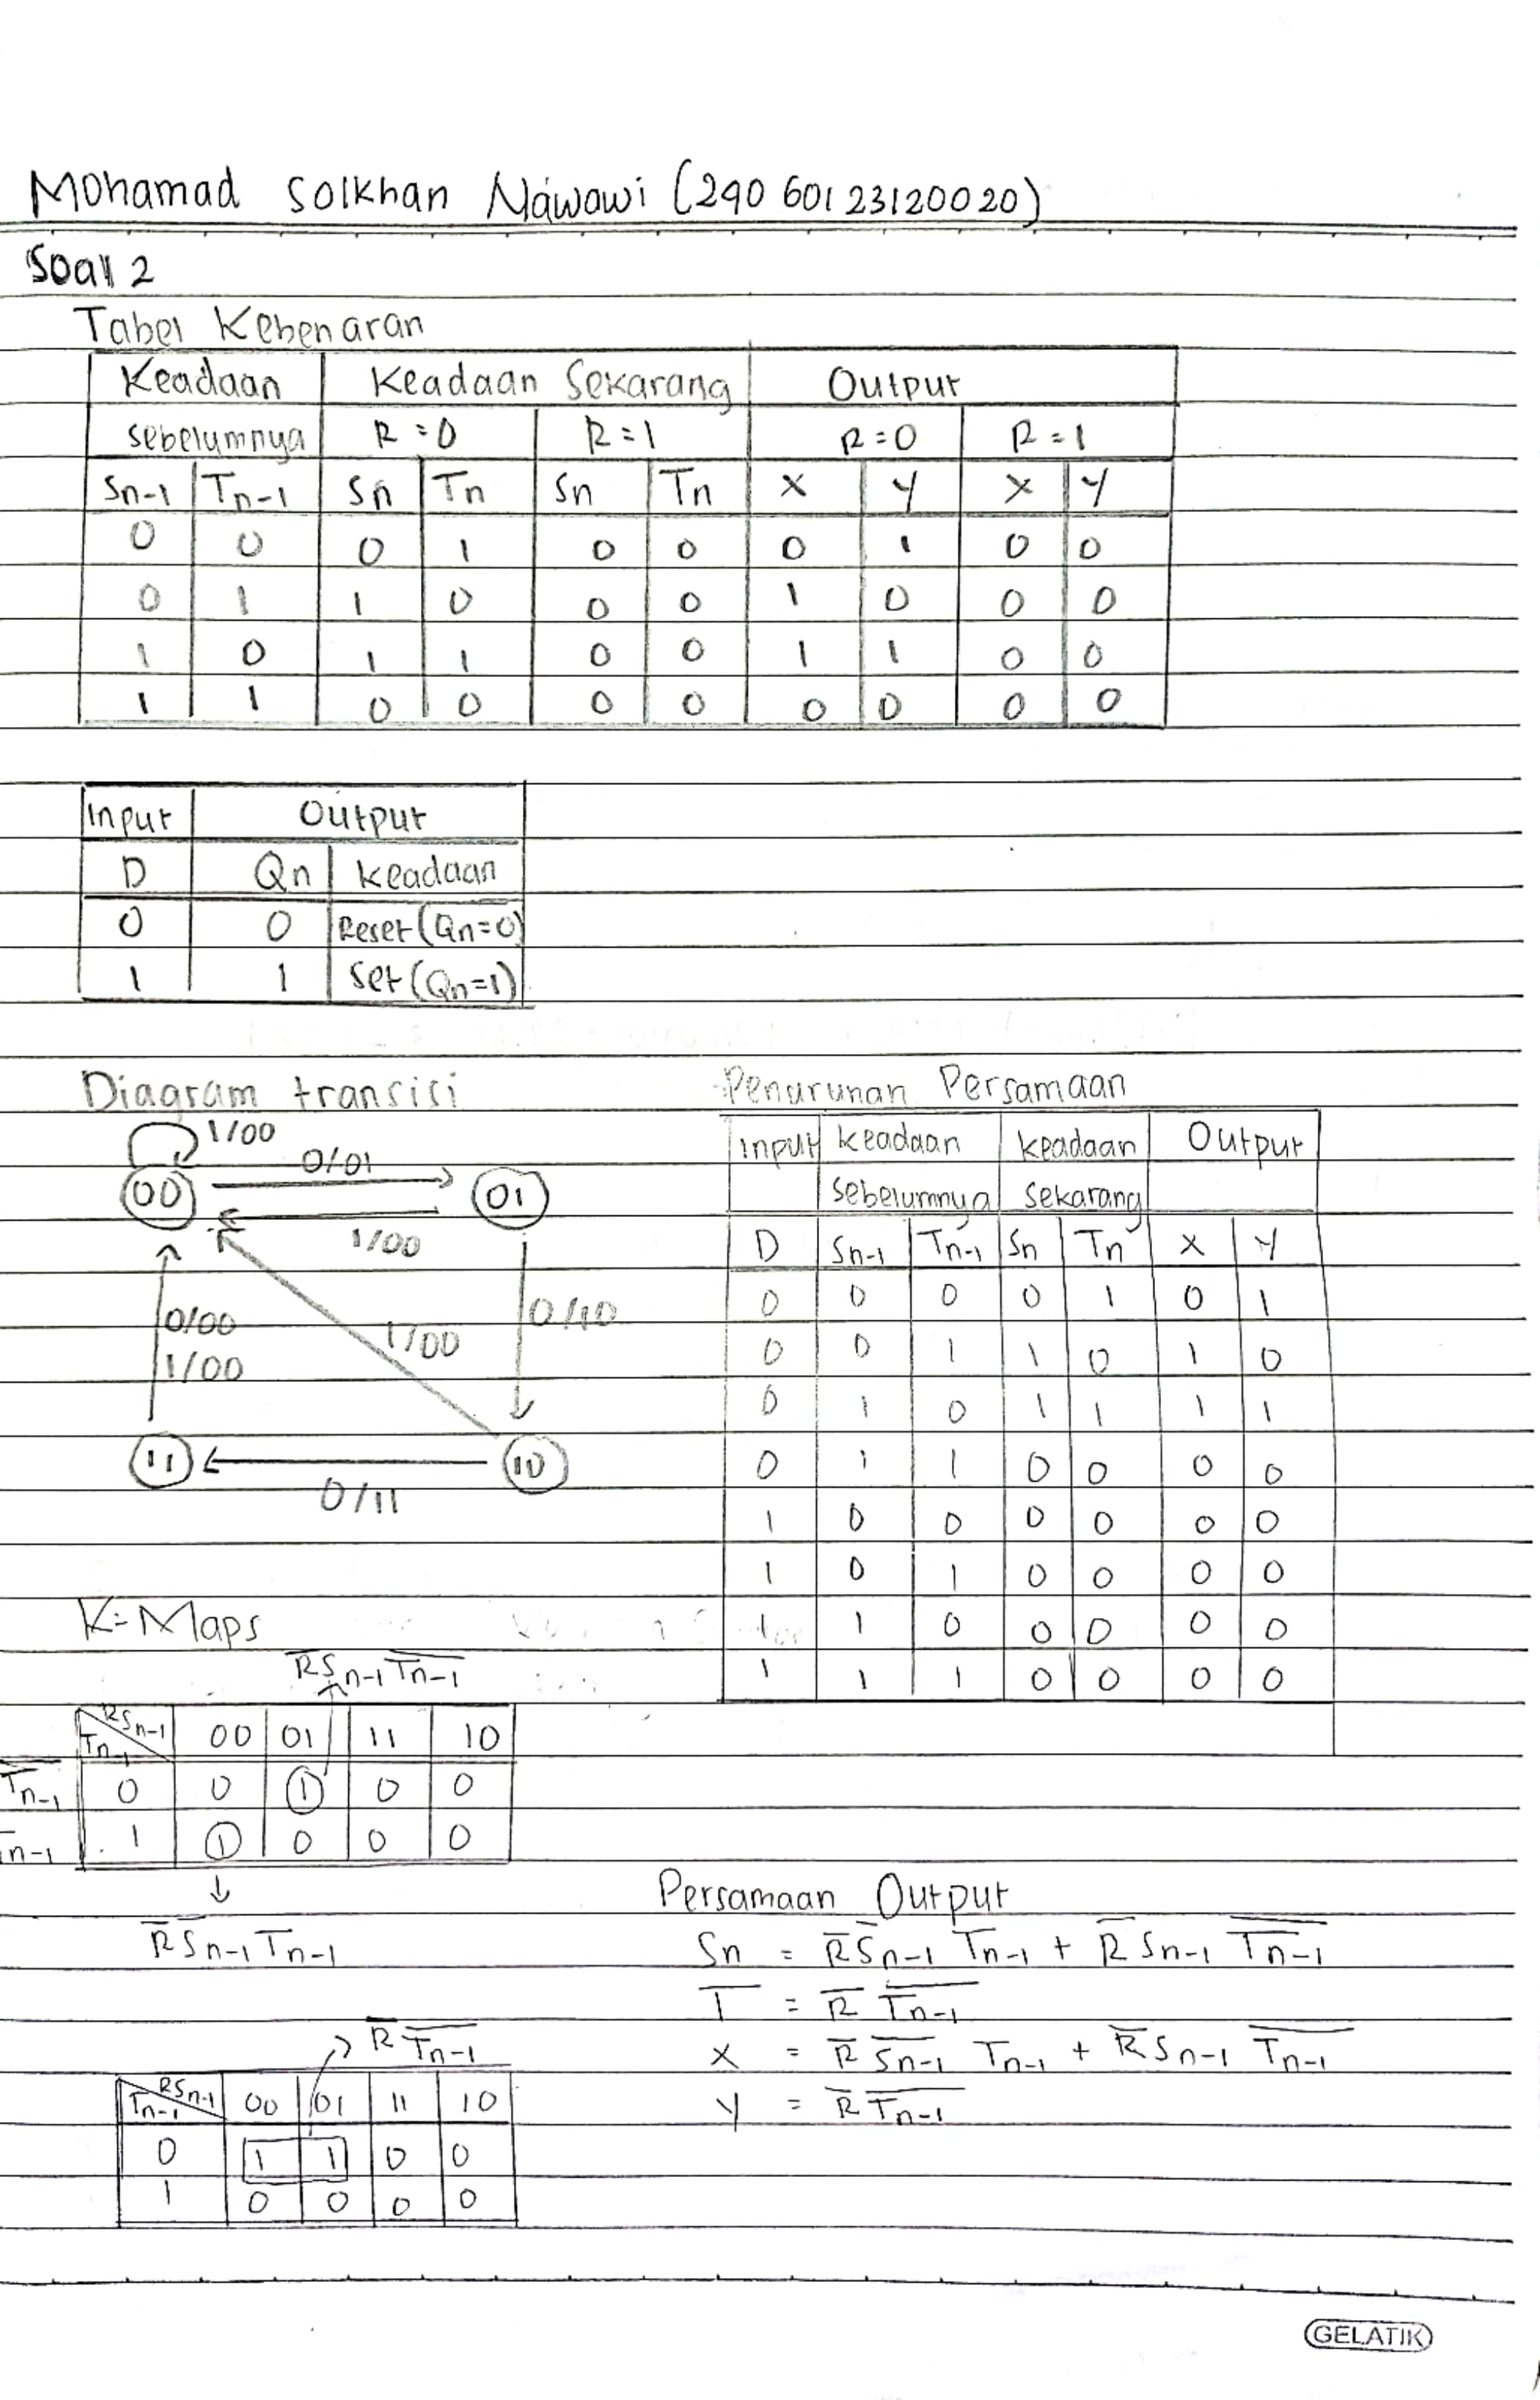 Mohamad Solkhan Nawawi (290 601 23120020)
Soal 2
Tabel Kebenaran
Keadaan Keadaan Sekarang Output
sebelumnya R=0 R=1 R=0 R=1
Sn-1 Tn-1 Sn Tn Sn Tn X Y X Y
0 0 0 1 0 0 0 1 0 0
0 1 1 0 0 0 1 0 0 0
1 0 1 1 0 0 1 1 0 0
1 1 0 0 0 0 0 0 0 0
Input Output
D Qn keadaan
0 0 Reset (Qn=0)
1 1 Set (Qn=1)
Diagram transisi
1/00
0/01
00 01
1/00
0/00
1/00
1/00
0/10
11 10
0/11
Penurunan Persamaan
Input keadaan keadaan Output
sebelumnya sekarang
D Sn-1 Tn-1 Sn Tn X Y
0 0 0 0 1 0 1
0 0 1 1 0 1 0
0 1 0 1 1 1 1
0 1 1 0 0 0 0
1 0 0 0 0 0 0
1 0 1 0 0 0 0
1 1 0 0 0 0 0
1 1 1 0 0 0 0
K-Maps
R̅Sn-1 T̅n-1
RSn-1
Tn-1 00 01 11 10
T̅n-1 0 0 1 0 0
Tn-1 1 1 0 0 0
↓
R̅ S̅n-1 Tn-1
R̅ T̅n-1
RSn-1
Tn-1 00 01 11 10
0 1 1 0 0
1 0 0 0 0
Persamaan Output
Sn = R̅ S̅n-1 Tn-1 + R̅ Sn-1 T̅n-1
T̅ = R̅ T̅n-1
X = R̅ S̅n-1 Tn-1 + R̅ Sn-1 T̅n-1
Y = R̅ T̅n-1
GELATIK